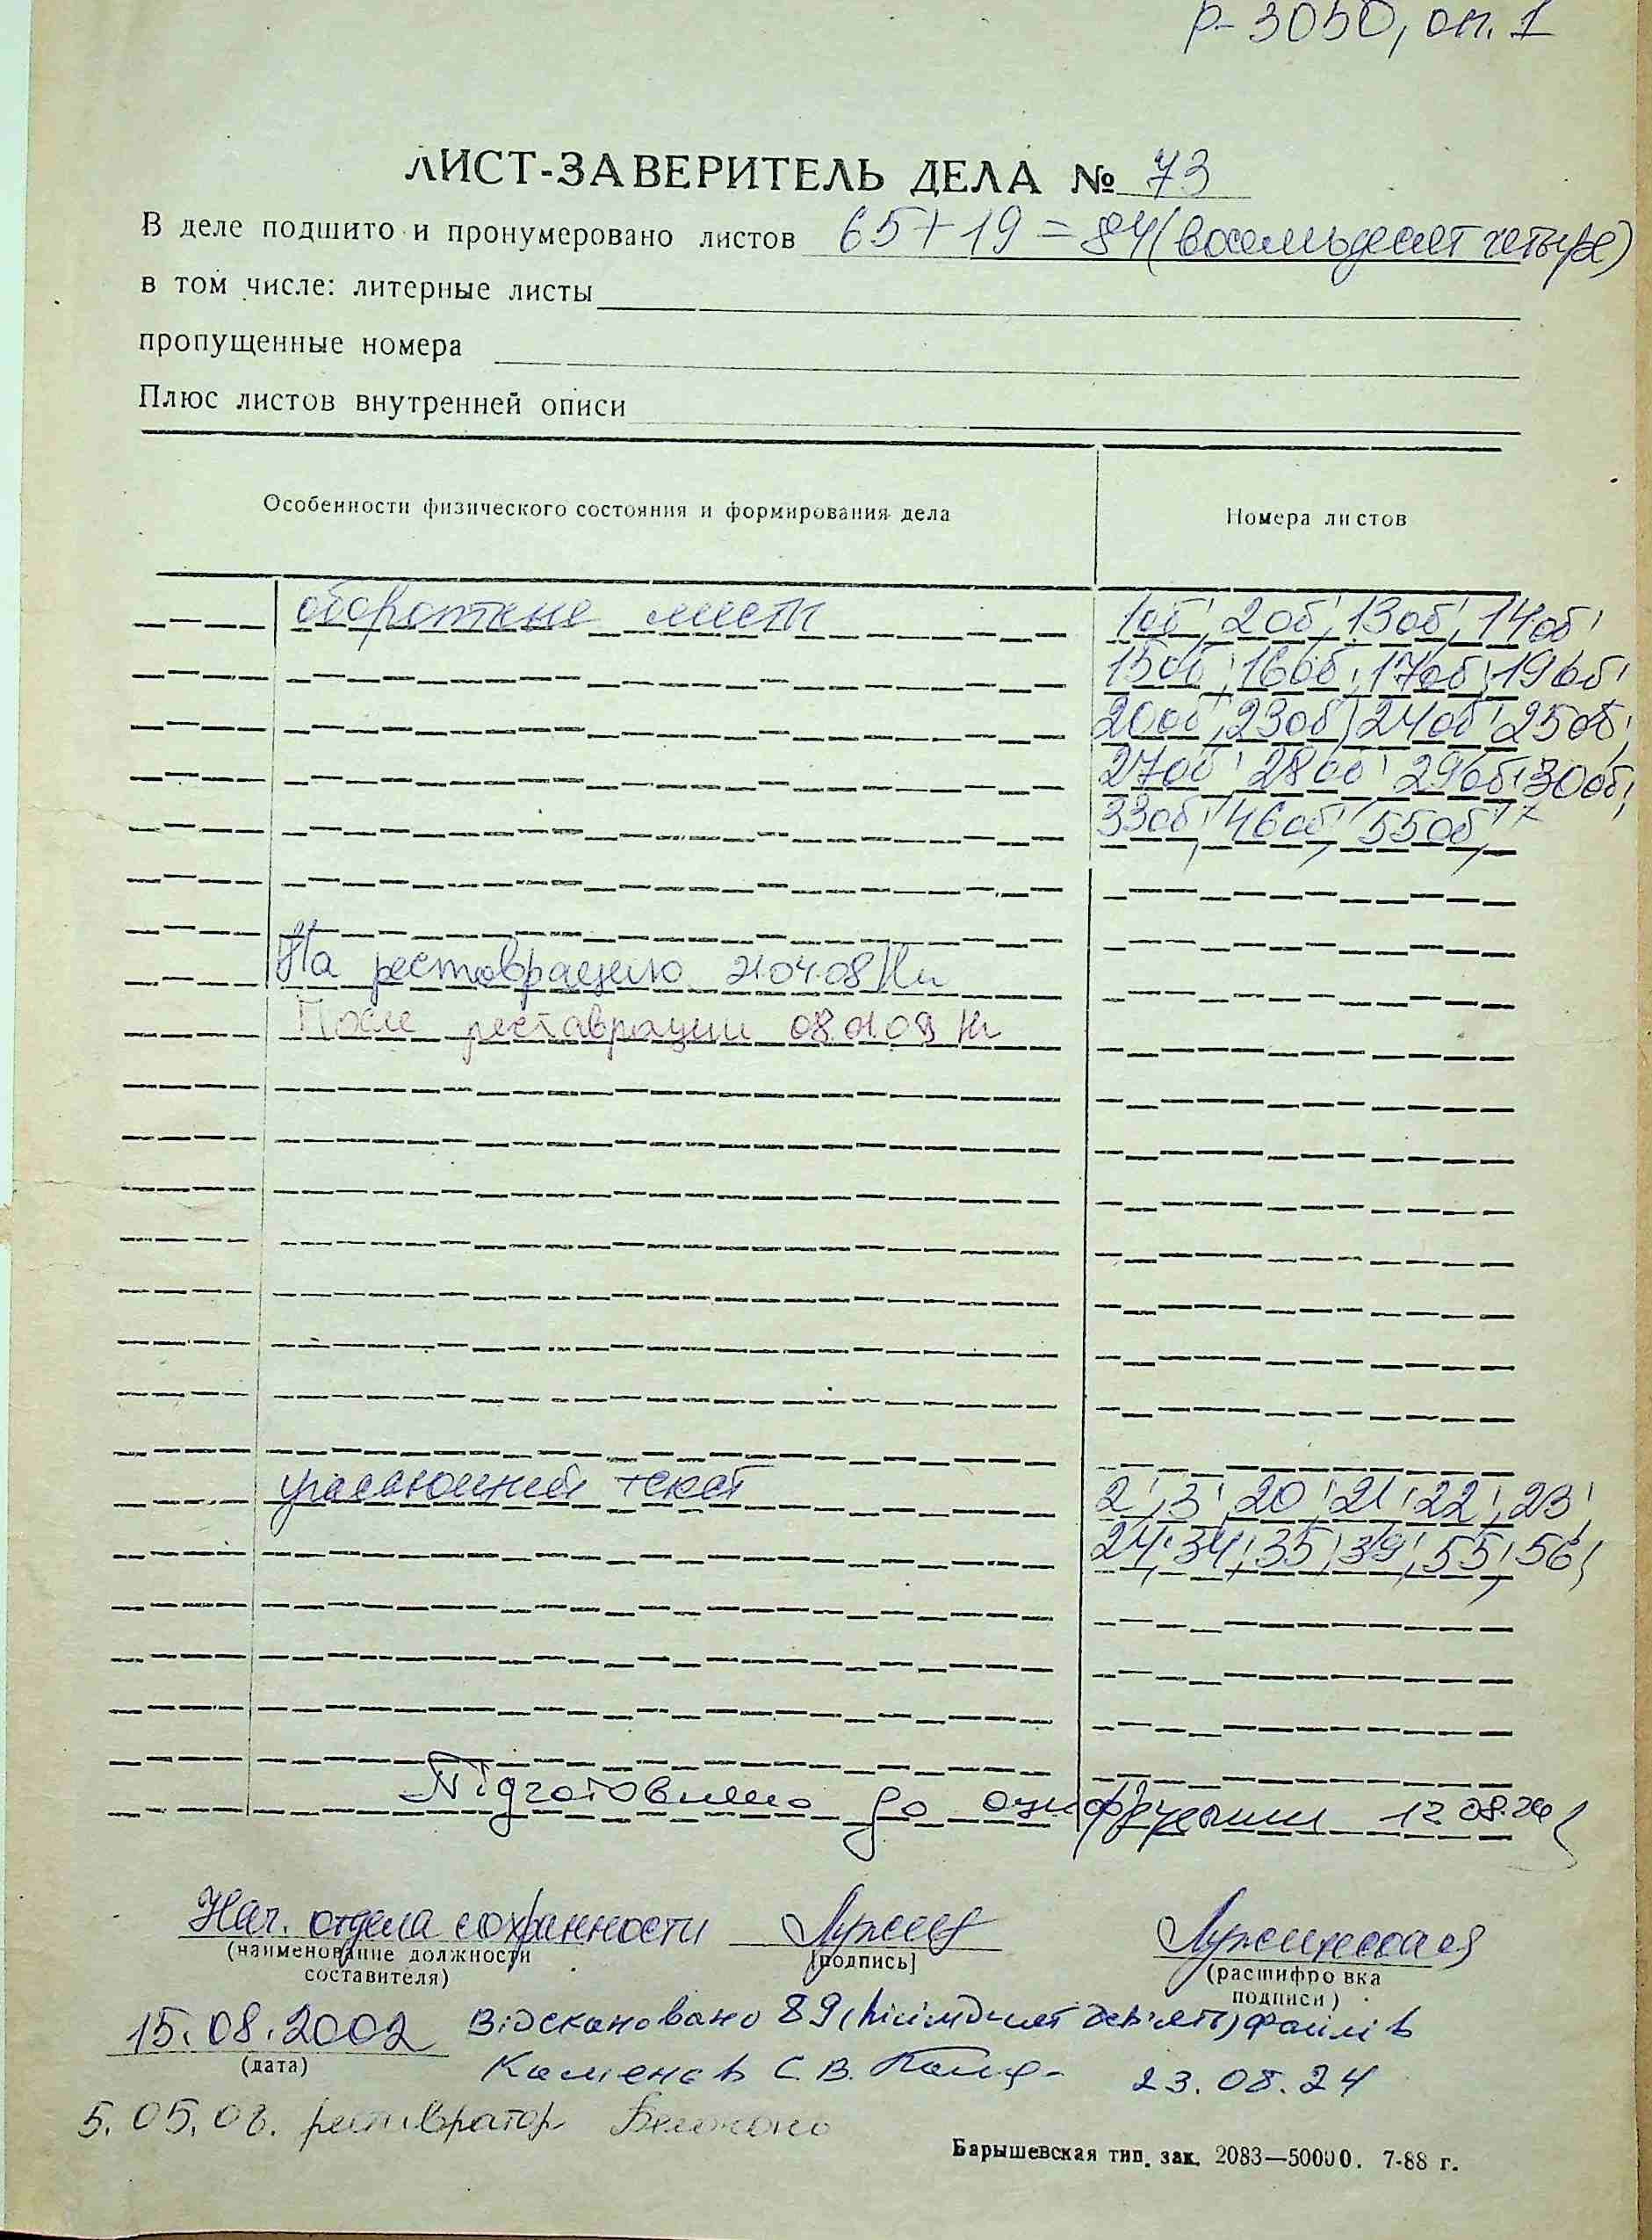 р-3050, оп. 1
ЛИСТ-ЗАВЕРИТЕЛЬ ДЕЛА № 73
В деле подшито и пронумеровано листов 65+19=84 (восемьдесят четыре)
в том числе: литерные листы
пропущенные номера
Плюс листов внутренней описи
Особенности физического состояния и формирования дела Номера листов
оборотные листы 1об, 2об, 13об, 14об,
15об, 16об, 17об, 19об,
20об, 23об, 24об, 25об,
27об, 28об, 29об, 30об,
33об, 46об, 55об,
На реставрацию 21.04.08
После реставрации 08.01.09
угасающий текст 2, 3, 20, 21, 22, 23,
24, 34, 35, 39, 55, 56,
Підготовлено до оцифрування 12.08.24
Нач. отдела сохранности
(наименование должности [подпись] (расшифровка
составителя) подписи)
15.08.2002 Відскановано 89 (вісімдесят дев'ять) файлів
(дата) Каменєв С.В. 23.08.24
5.05.08. реставратор
Барышевская тип. зак. 2083—50000. 7-88 г.